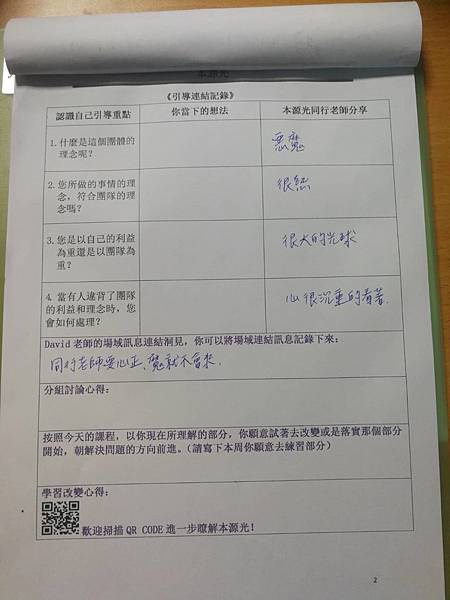 本源光
《引導連結記錄》
認識自己引導重點
你當下的想法
本源光同行老師分享
1.什麼是這個團體的
理念呢?
惡魔
2.您所做的事情的理
念，符合團隊的理
念嗎?
很怒
3.您是以自己的利益
為重還是以團隊為
重?
很大的光球
4.當有人違背了團隊
的利益和理念時，您
會如何處理?
心很沉重的看著.
David 老師的場域訊息連結洞見，你可以將場域連結訊息記錄下來：
同行老師要心正、魔就不會來.
分組討論心得：
按照今天的課程，以你現在所理解的部分，你願意試著去改變或是落實那個部分
開始，朝解決問題的方向前進。（請寫下本周你願意去練習部分）
學習改變心得：
歡迎掃描 QR CODE 進一步瞭解本源光！
2